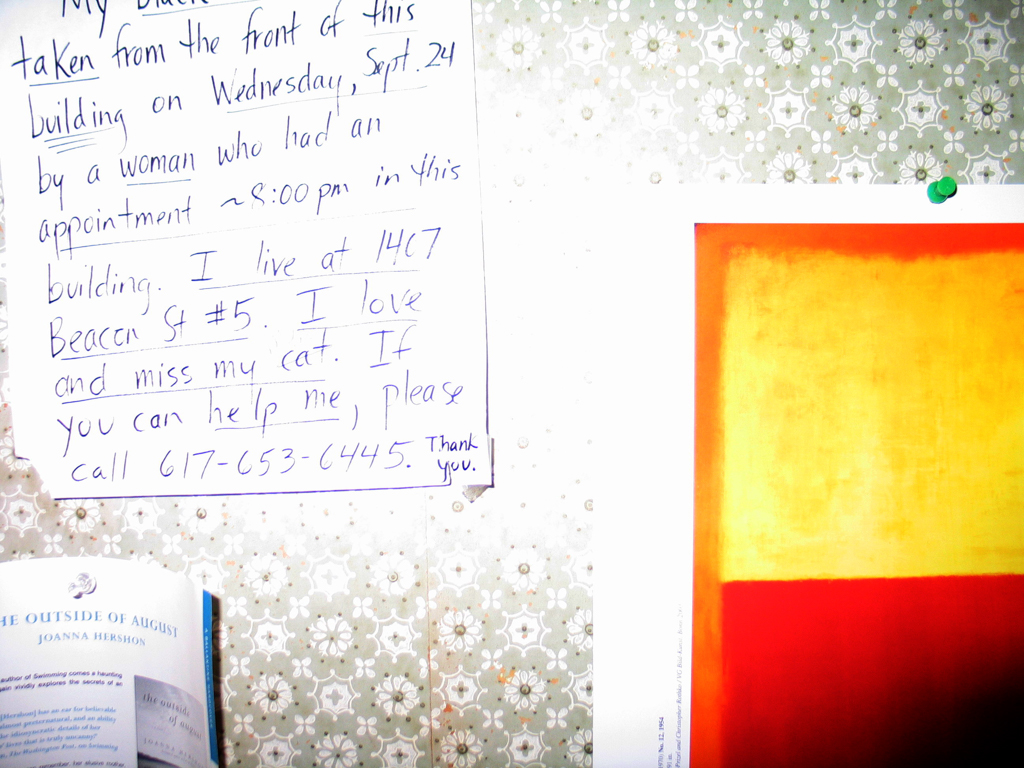 My black
taken from the front of this
building on Wednesday, Sept. 24
by a woman who had an
appointment ~8:00 pm in this
building. I live at 1467
Beacon St #5. I love
and miss my cat. If
you can help me, please
call 617-653-6445. Thank
you.
HE OUTSIDE OF AUGUST
JOANNA HERSHON
author of Swimming comes a haunting
gain vividly explores the secrets of an
[Hershon] has an ear for believable
almost preternatural, and an ability
the idiosyncratic details of her
love that is truly uncanny."
The Washington Post, on Swimming
the outside
of august
JOANNA
No. 12, 1954